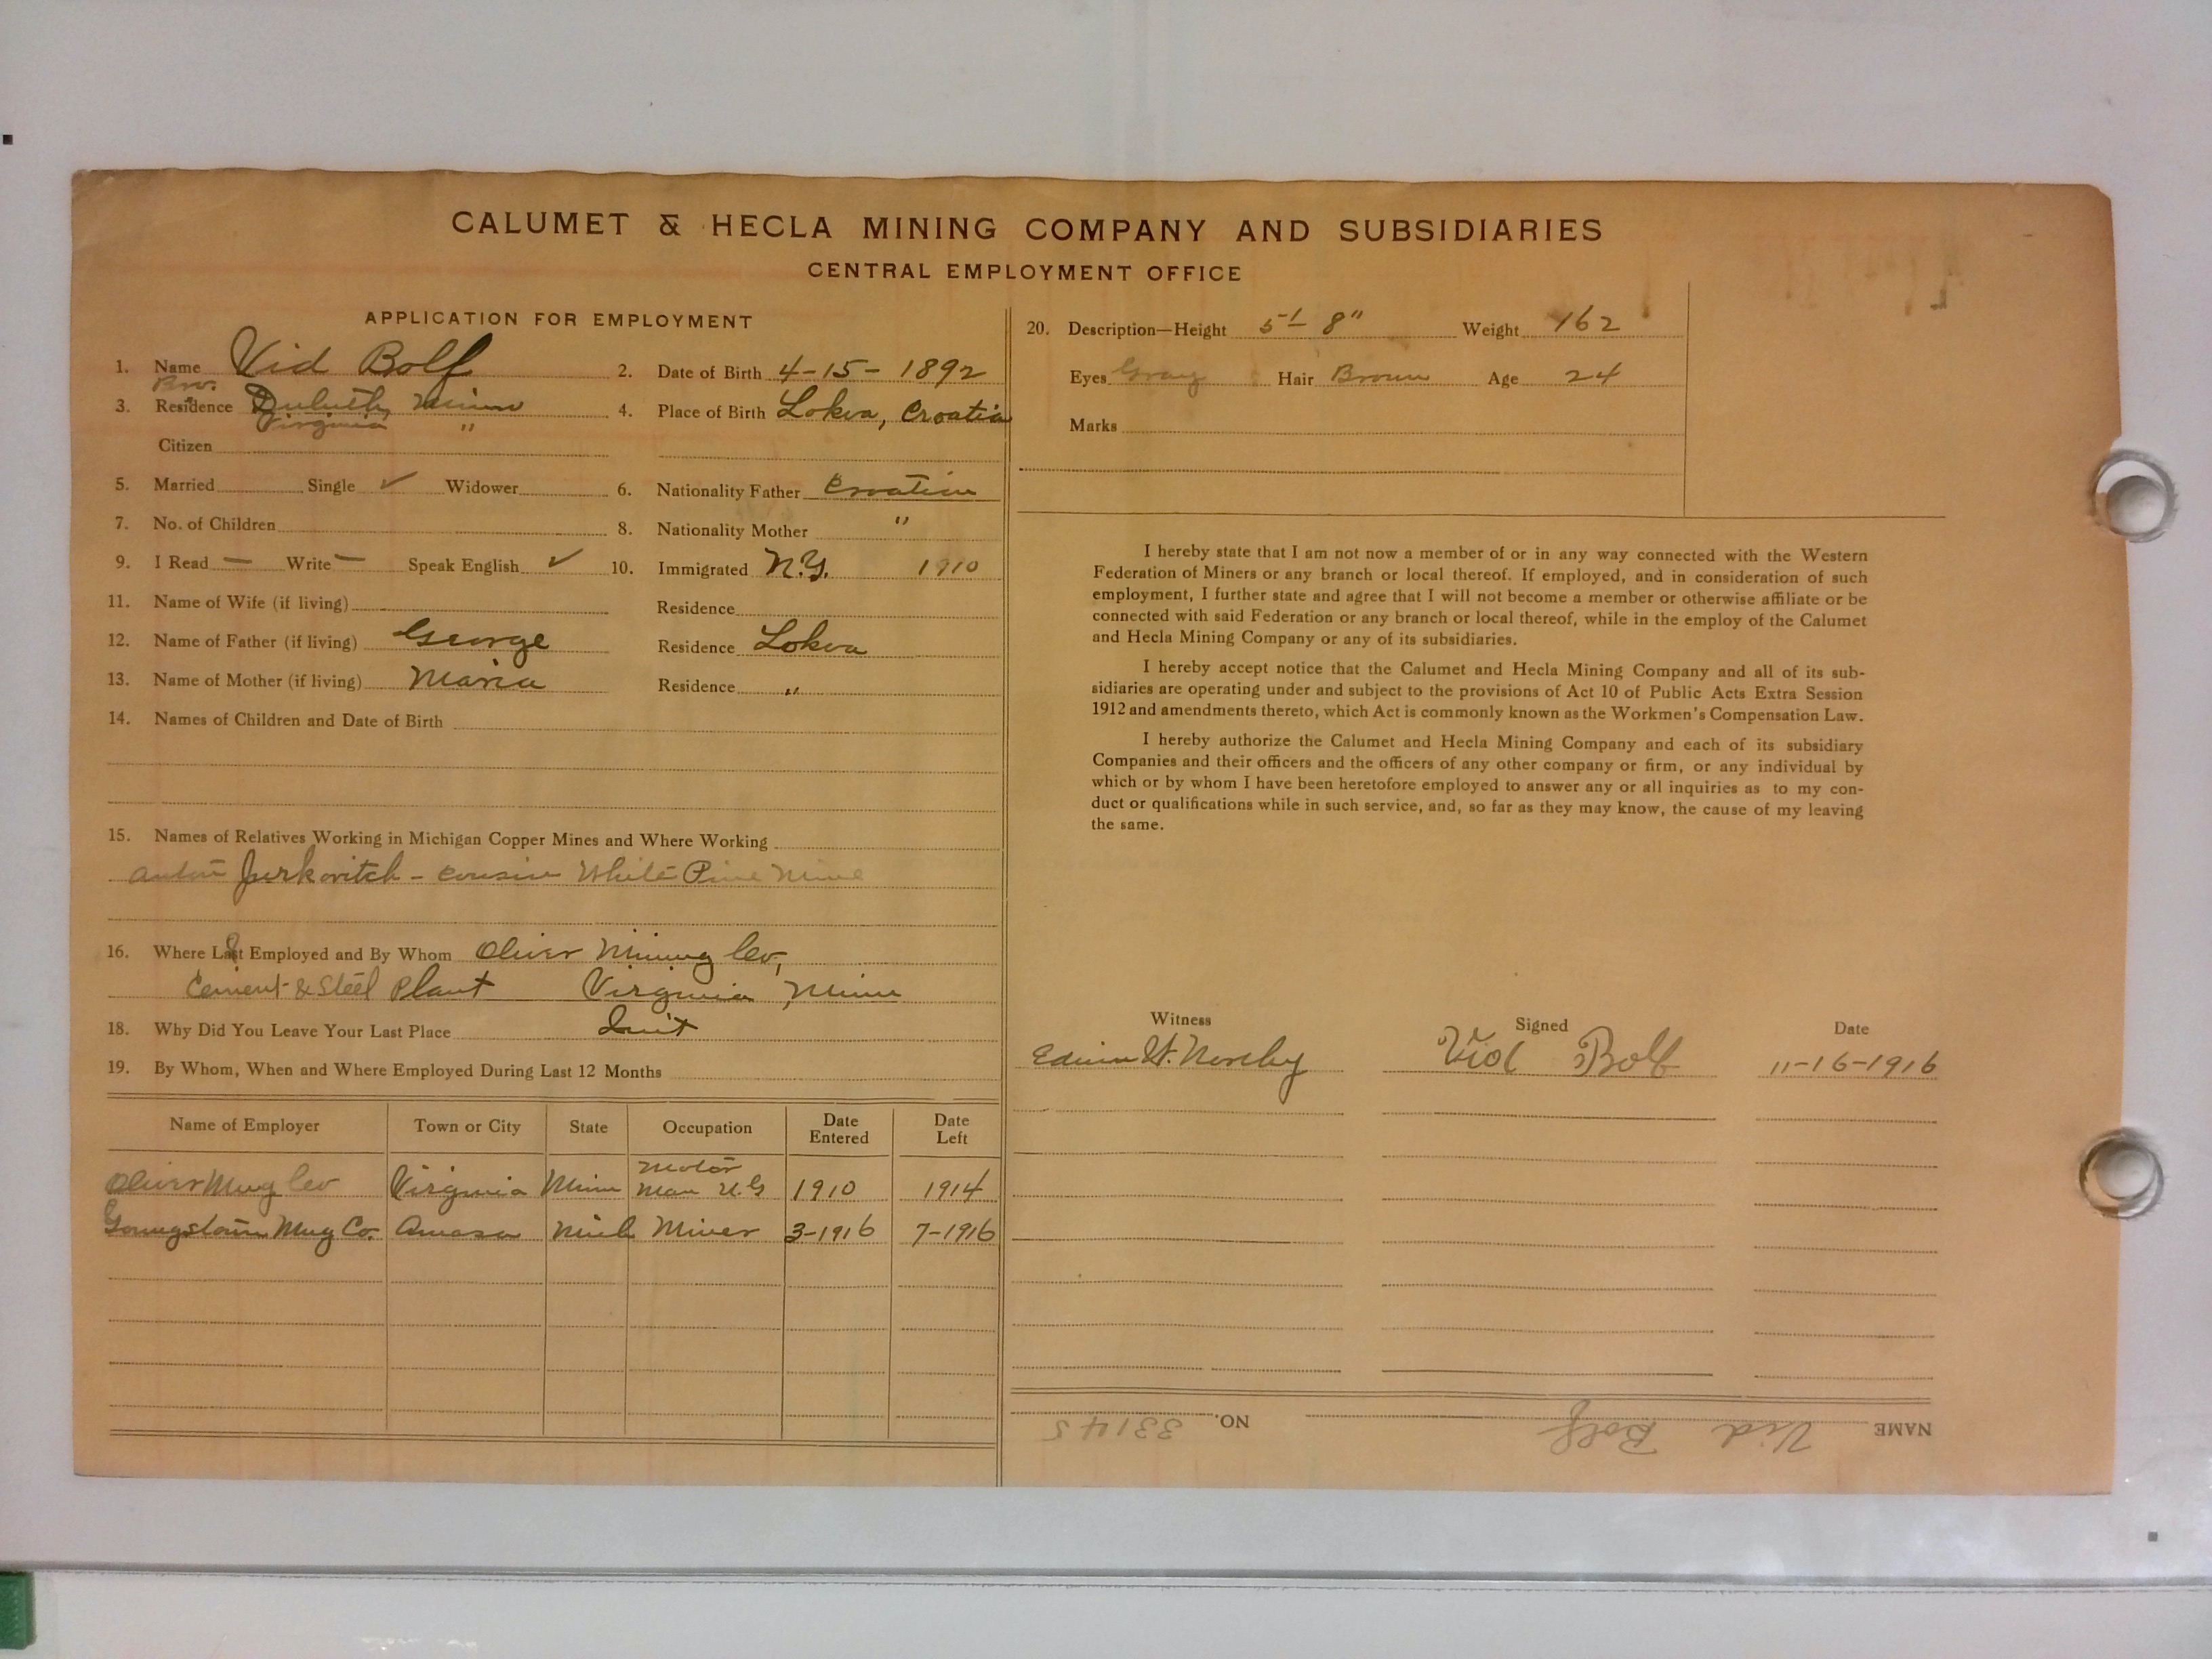 CALUMET & HECLA MINING COMPANY AND SUBSIDIARIES
CENTRAL EMPLOYMENT OFFICE
APPLICATION FOR EMPLOYMENT
1. Name Vid Bolf 2. Date of Birth 4-15-1892
Bro.
3. Residence Duluth, Minn 4. Place of Birth Lokva, Croatia
Virginia "
Citizen
5. Married Single ✓ Widower 6. Nationality Father Croatian
7. No. of Children 8. Nationality Mother "
9. I Read — Write — Speak English ✓ 10. Immigrated N.Y. 1910
11. Name of Wife (if living) Residence
12. Name of Father (if living) George Residence Lokva
13. Name of Mother (if living) Maria Residence "
14. Names of Children and Date of Birth
15. Names of Relatives Working in Michigan Copper Mines and Where Working
Anton Jurkovitch - cousin White Pine Mine
16. Where Last Employed and By Whom Oliver Mining Co,
Cement & Steel Plant Virginia, Minn
18. Why Did You Leave Your Last Place Quit
19. By Whom, When and Where Employed During Last 12 Months
Name of Employer Town or City State Occupation Date Entered Date Left
Oliver Mng Co Virginia Minn Motor Man U.G 1910 1914
Youngstown Mng Co. Amasa Mich Miner 3-1916 7-1916
20. Description—Height 5' 8" Weight 162
Eyes Gray Hair Brown Age 24
Marks
I hereby state that I am not now a member of or in any way connected with the Western
Federation of Miners or any branch or local thereof. If employed, and in consideration of such
employment, I further state and agree that I will not become a member or otherwise affiliate or be
connected with said Federation or any branch or local thereof, while in the employ of the Calumet
and Hecla Mining Company or any of its subsidiaries.
I hereby accept notice that the Calumet and Hecla Mining Company and all of its sub-
sidiaries are operating under and subject to the provisions of Act 10 of Public Acts Extra Session
1912 and amendments thereto, which Act is commonly known as the Workmen's Compensation Law.
I hereby authorize the Calumet and Hecla Mining Company and each of its subsidiary
Companies and their officers and the officers of any other company or firm, or any individual by
which or by whom I have been heretofore employed to answer any or all inquiries as to my con-
duct or qualifications while in such service, and, so far as they may know, the cause of my leaving
the same.
Witness Signed Date
Edwin W. Vid Bolf 11-16-1916
NAME Vid Bolf NO. 33145